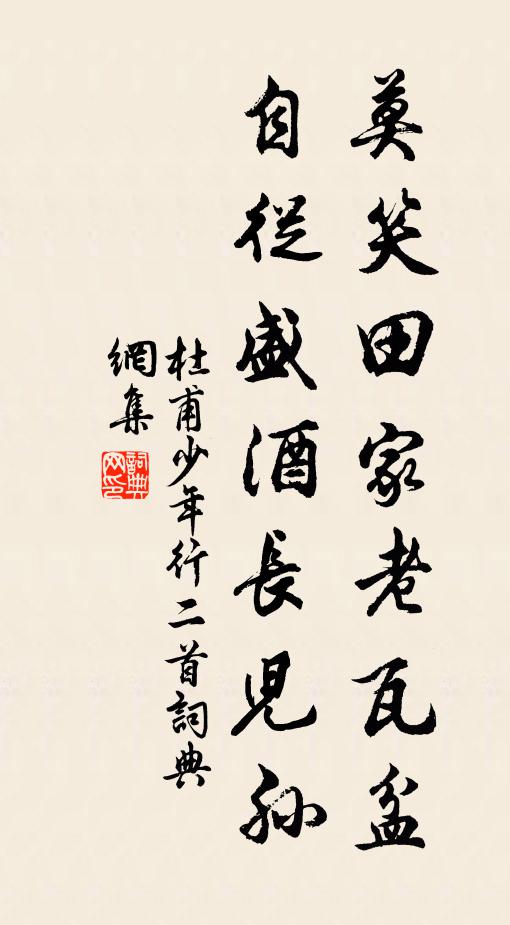 莫笑田家老瓦盆
自從盛酒長兒孫
杜甫少年行二首詞典
網集
詞典
网印